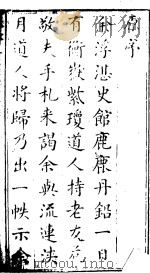 序
余浮湛史館鹿麋丹鉛一日
有衡嶽紫瓊道人持老友
敬夫手札來謁余與流連浹
月道人將歸乃出一帙示余